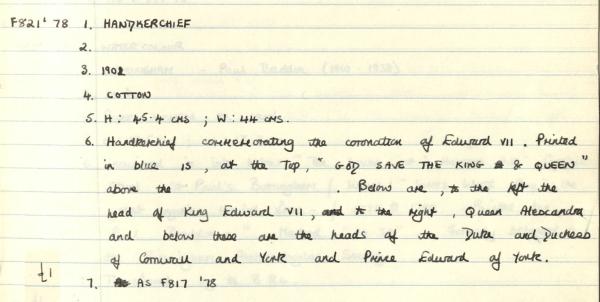 F821' 78 1. HANDKERCHIEF
2.
3. 1902
4. COTTON
5. H: 45.4 CMS ; W: 44 CMS.
6. Handkerchief commemorating the coronation of Edward VII. Printed
in blue is, at the top, "GOD SAVE THE KING & QUEEN"
above the . Below are, to the left the
head of King Edward VII, and to the right, Queen Alexandra
and below these are the heads of the Duke and Duchess
of Cornwall and York and Prince Edward of York.
£1
7. AS F817 '78